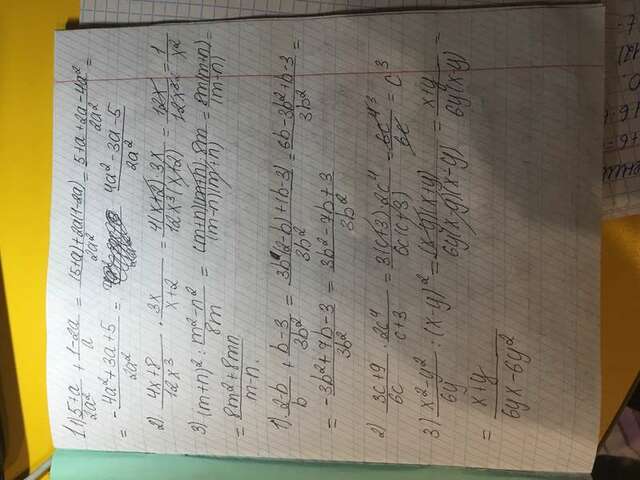 1) 5+a/2a² + 1-2a/a = (5+a)+2a(1-2a)/2a² = 5+a+2a-4a²/2a² =
= -4a²+3a+5/2a² = 4a²-3a-5/2a²
2) 4x+8/12x³ · 3x/x+2 = 4(x+2)·3x/12x³(x+2) = 12x/12x³ = 1/x²
3) (m+n)² : m²-n²/8m = (m+n)(m+n)·8m/(m-n)(m+n) = 8m(m+n)/(m-n) =
= 8m²+8mn/m-n.
1) 2-b/b + b-3/3b² = 3b(2-b)+(b-3)/3b² = 6b-3b²+b-3/3b² =
= -3b²+7b-3/3b² = 3b²-7b+3/3b²
2) 3c+9/6c · 2c⁴/c+3 = 3(c+3)·2c⁴/6c(c+3) = 6c⁴/6c = c³
3) x²-y²/6y : (x-y)² = (x-y)(x+y)/6y(x-y)(x-y) = x+y/6y(x-y) =
= x+y/6yx-6y²